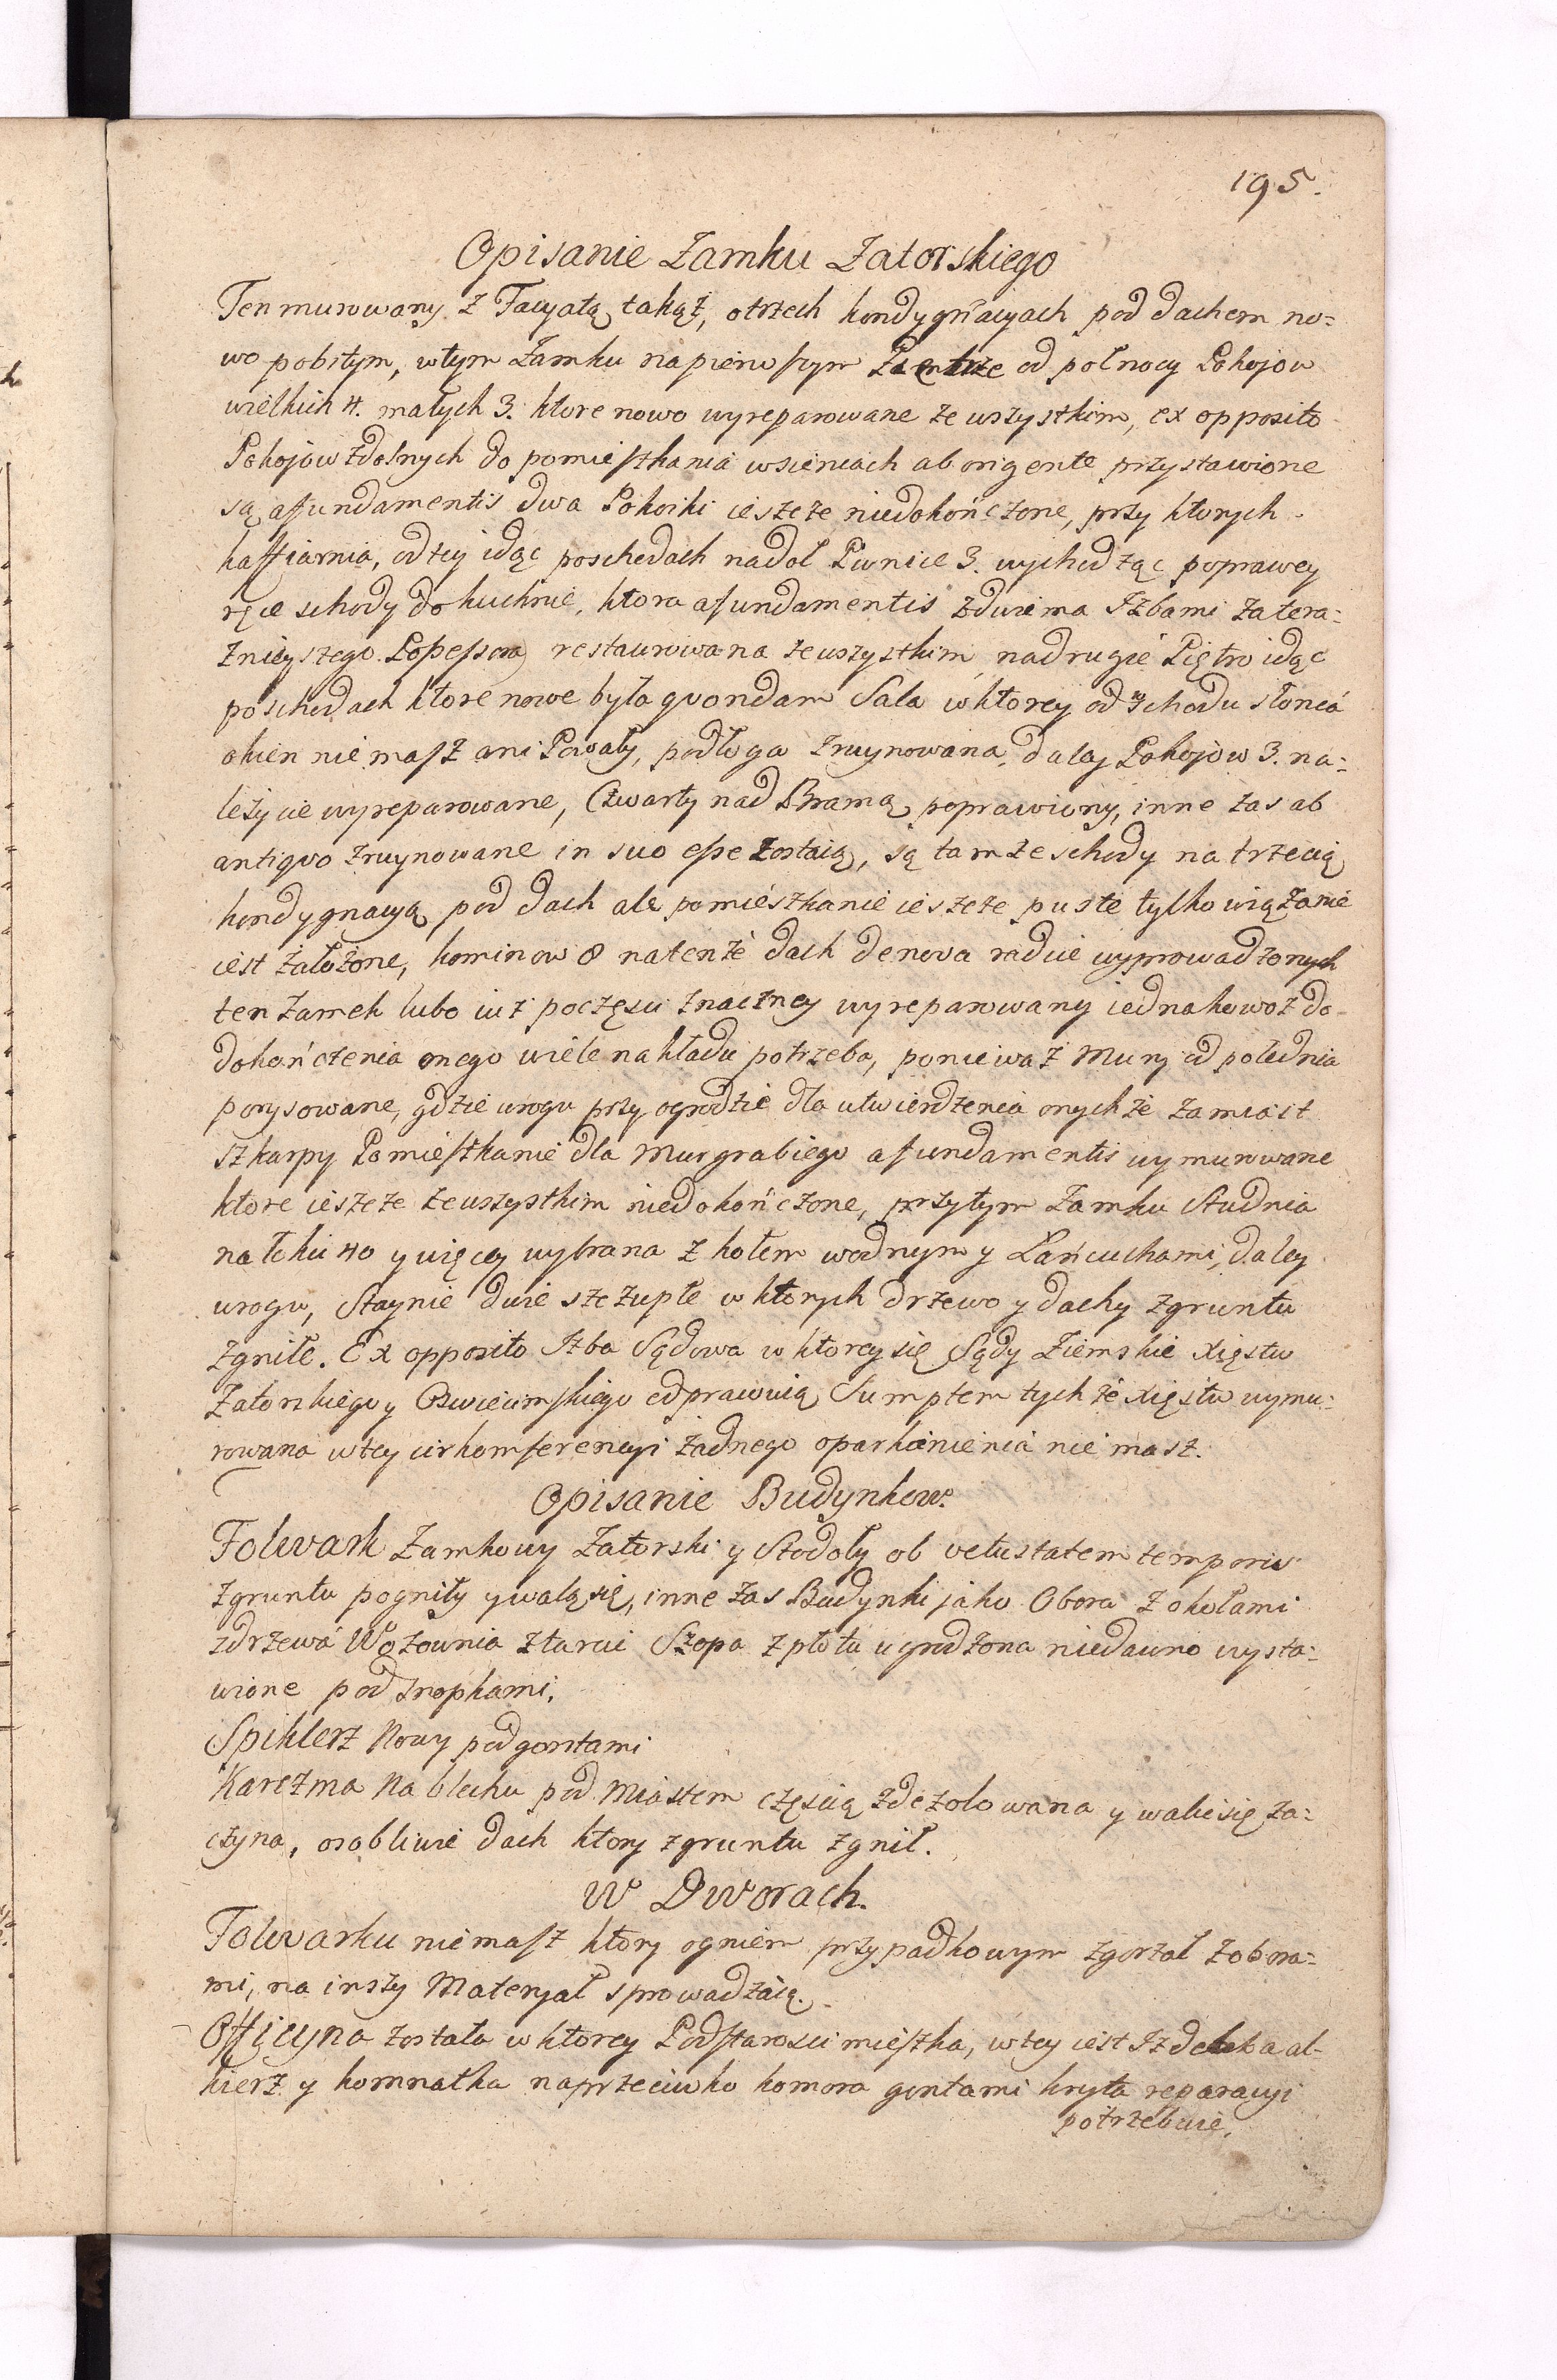 195.
Opisanie Zamku Zatorskiego
Ten murowany z Facyatą takąż, o trzech kondygnacyach pod dachem no:
wo pobitym, w tym Zamku na pierwszym Piętrze od połnocy Pokojow
wielkich 4. małych 3. ktore nowo wyreparowane ze wszystkim, ex opposito
Pokojow zdolnych do pomieszkania w sieniach ab origente przystawione
są a fundamentis dwa Pokoiki ieszcze niedokończone, przy ktorych
kaffiarnia, od tey idąc po schodach na doł Piwnice 3. wychodząc po prawey
ręce schody do kuchnie, ktora a fundamentis z dwiema Izbami za tera:
znieyszego Possessora restaurowana ze wszystkim, na drugie Piętro idąc
po schodach ktore nowe była quondam Sala w ktorey od wschodu słonca
okien nie masz ani Powały, podłoga zruynowana, daley Pokojow 3. na:
leżycie wyreparowane, Czwarty nad Bramą poprawiony, inne zas ab
antiquo zruynowane in suo esse zostaią, są tamże schody na trzecią
kondygnacyą pod dach ale pomieszkanie ieszcze puste tylko wiązanie
iest założone, kominow 8 na tenże dach de nova radice wyprowadzonych
ten Zamek lubo iuż po częsci znaczney wyreparowany iednakowoż do
dokończenia onego wiele nakładu potrzeba, ponieważ Mury od południa
porysowane, gdzie w rogu przy ogrodzie dla utwierdzenia onychże zamiast
szkarpy Pomieszkanie dla Murgrabiego a fundamentis wymurowane
ktore ieszcze ze wszystkim niedokończone, przy tym Zamku Studnia
na łokci 40 y więcey wybrana z kołem wodnym y Łańcuchami, daley
w rogu, Staynie dwie szczupłe w ktorych drzewo y dachy z gruntu
zgniłe. Ex opposito Izba Sądowa w ktorey się Sądy Ziemskie Xięstw
Zatorskiego y Oswiecimskiego odprawuią Sumptem tychże Xięstw wymu:
rowana w tey cirkomferencyi żadnego oparkanienia nie masz.
Opisanie Budynkow.
Folwark Zamkowy Zatorski y Stodoły ob vetustatem temporis
z gruntu pogniły y walą się, inne zas Budynki jako Obora z okołami
z drzewa Wozownia z tarcic Szopa z płotu ugrodzona niedawno wysta:
wione pod snopkami.
Spiklerz Nowy pod gontami
Karczma Na blechu pod Miastem częscią zdezolowana y walic się za:
czyna, osobliwie dach ktory z gruntu zgnił.
W Dworach.
Folwarku nie masz ktory ogniem przypadkowym zgorzał z obora:
mi, na inszy Materyał sprowadzaią.
Officyna została w ktorey Podstarosci mieszka, w tey iest Izdebka al-
kierz y komnatka naprzeciwko komora gontami kryta reparacyi
potrzebuie.